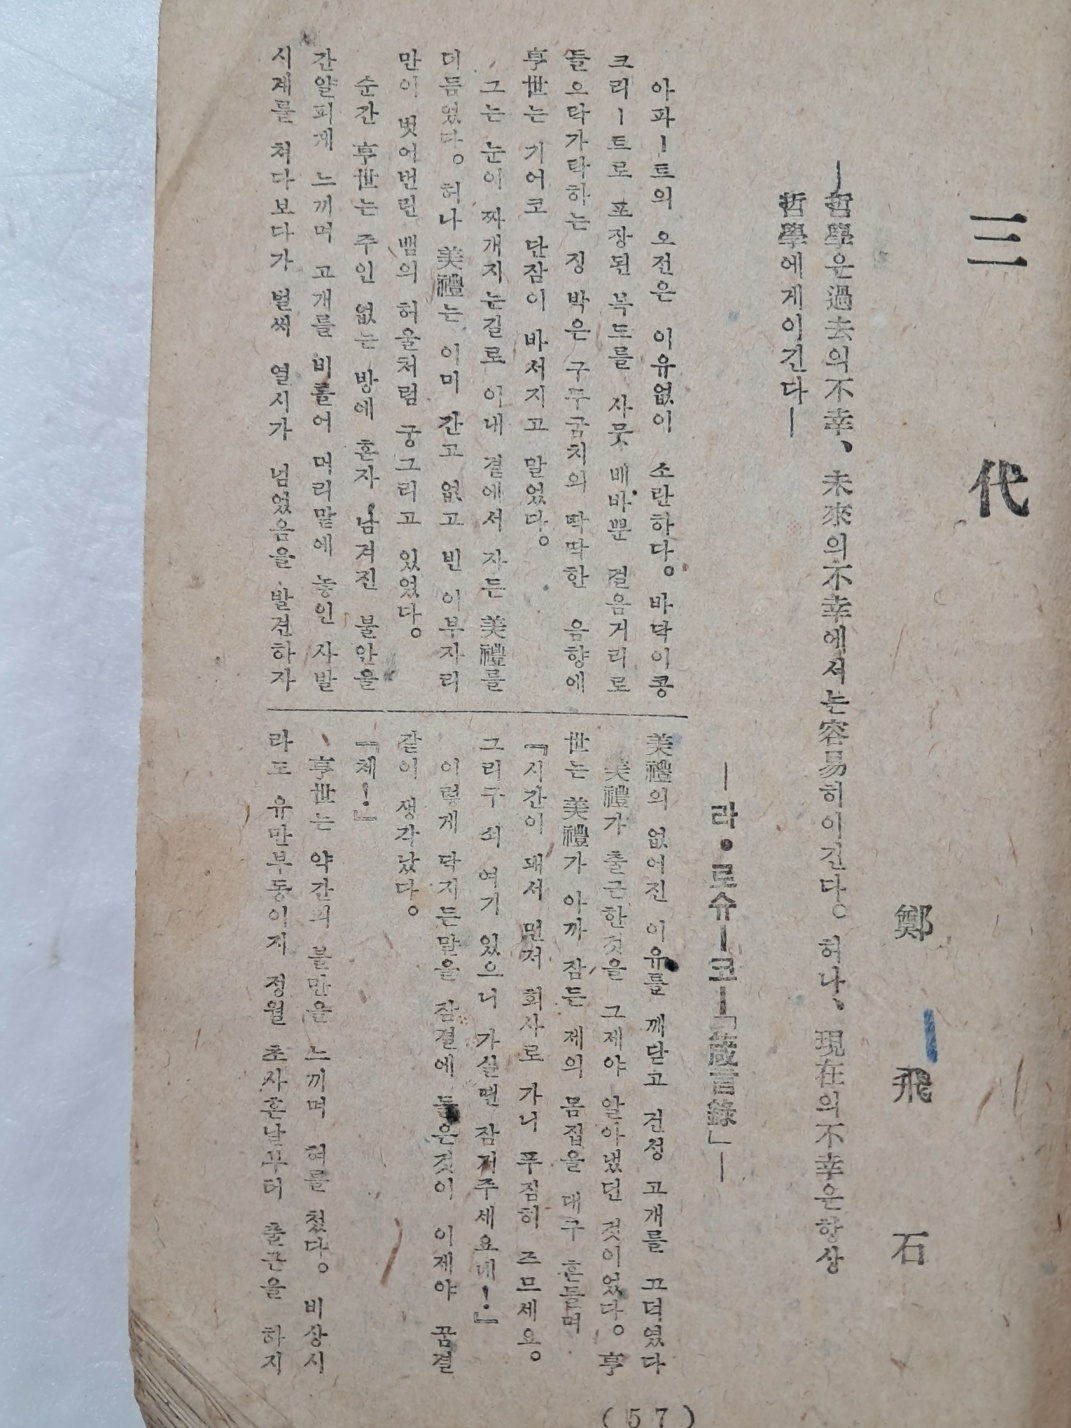 三代
鄭飛石
―哲學은過去의不幸、未來의不幸에서는容易히이긴다。허나、現在의不幸은항상
哲學에게이긴다―
―라・로슈―코―「箴言錄」―
아파―트의 오전은 이유없이 소란하다。바닥이콩
크리―트로 포장된 복도를 사뭇 배바뿐 걸음거리로
들으락가락하는 징 박은 구두굼치의 딱딱한 음향에
亨世는 기어코 단잠이 바서지고 말었다。
그는 눈이 짜개지는길로 이내 곁에서 자든 美禮를
더듬었다。허나 美禮는 이미 간고 없고 빈 이부자리
만이 벗어번린 뱀의 허울처럼 궁그리고 있었다。
순간 亨世는 주인 없는 방에 혼자 남겨진 불안을
간얄피게 느끼며 고개를 비틀어 머리맡에 놓인 사발
시계를 처다보다가 벌써 열시가 넘었음을 발견하자
美禮의 없어진 이유를 깨닫고 건성 고개를 끄덕였다
美禮가 출근한것을 그제야 알아냈던 것이었다。亨
世는 美禮가 아까 잠든 제의 몸집을 대구 흔들며
『시간이 돼서 먼저 회사로 가니 푸짐히 즈므세요。
그리구 쇠 여기 있으니 가실땐 잠거주세요네!』
이렇게 닥지든말을 잠결에 들은것이 이제야 꿈결
같이 생각났다。
『체!』
亨世는 약간의 불만을 느끼며 혀를 찼다。비상시
라도 유만부동이지 정월 초사흔날부터 출근을 하지
(57)